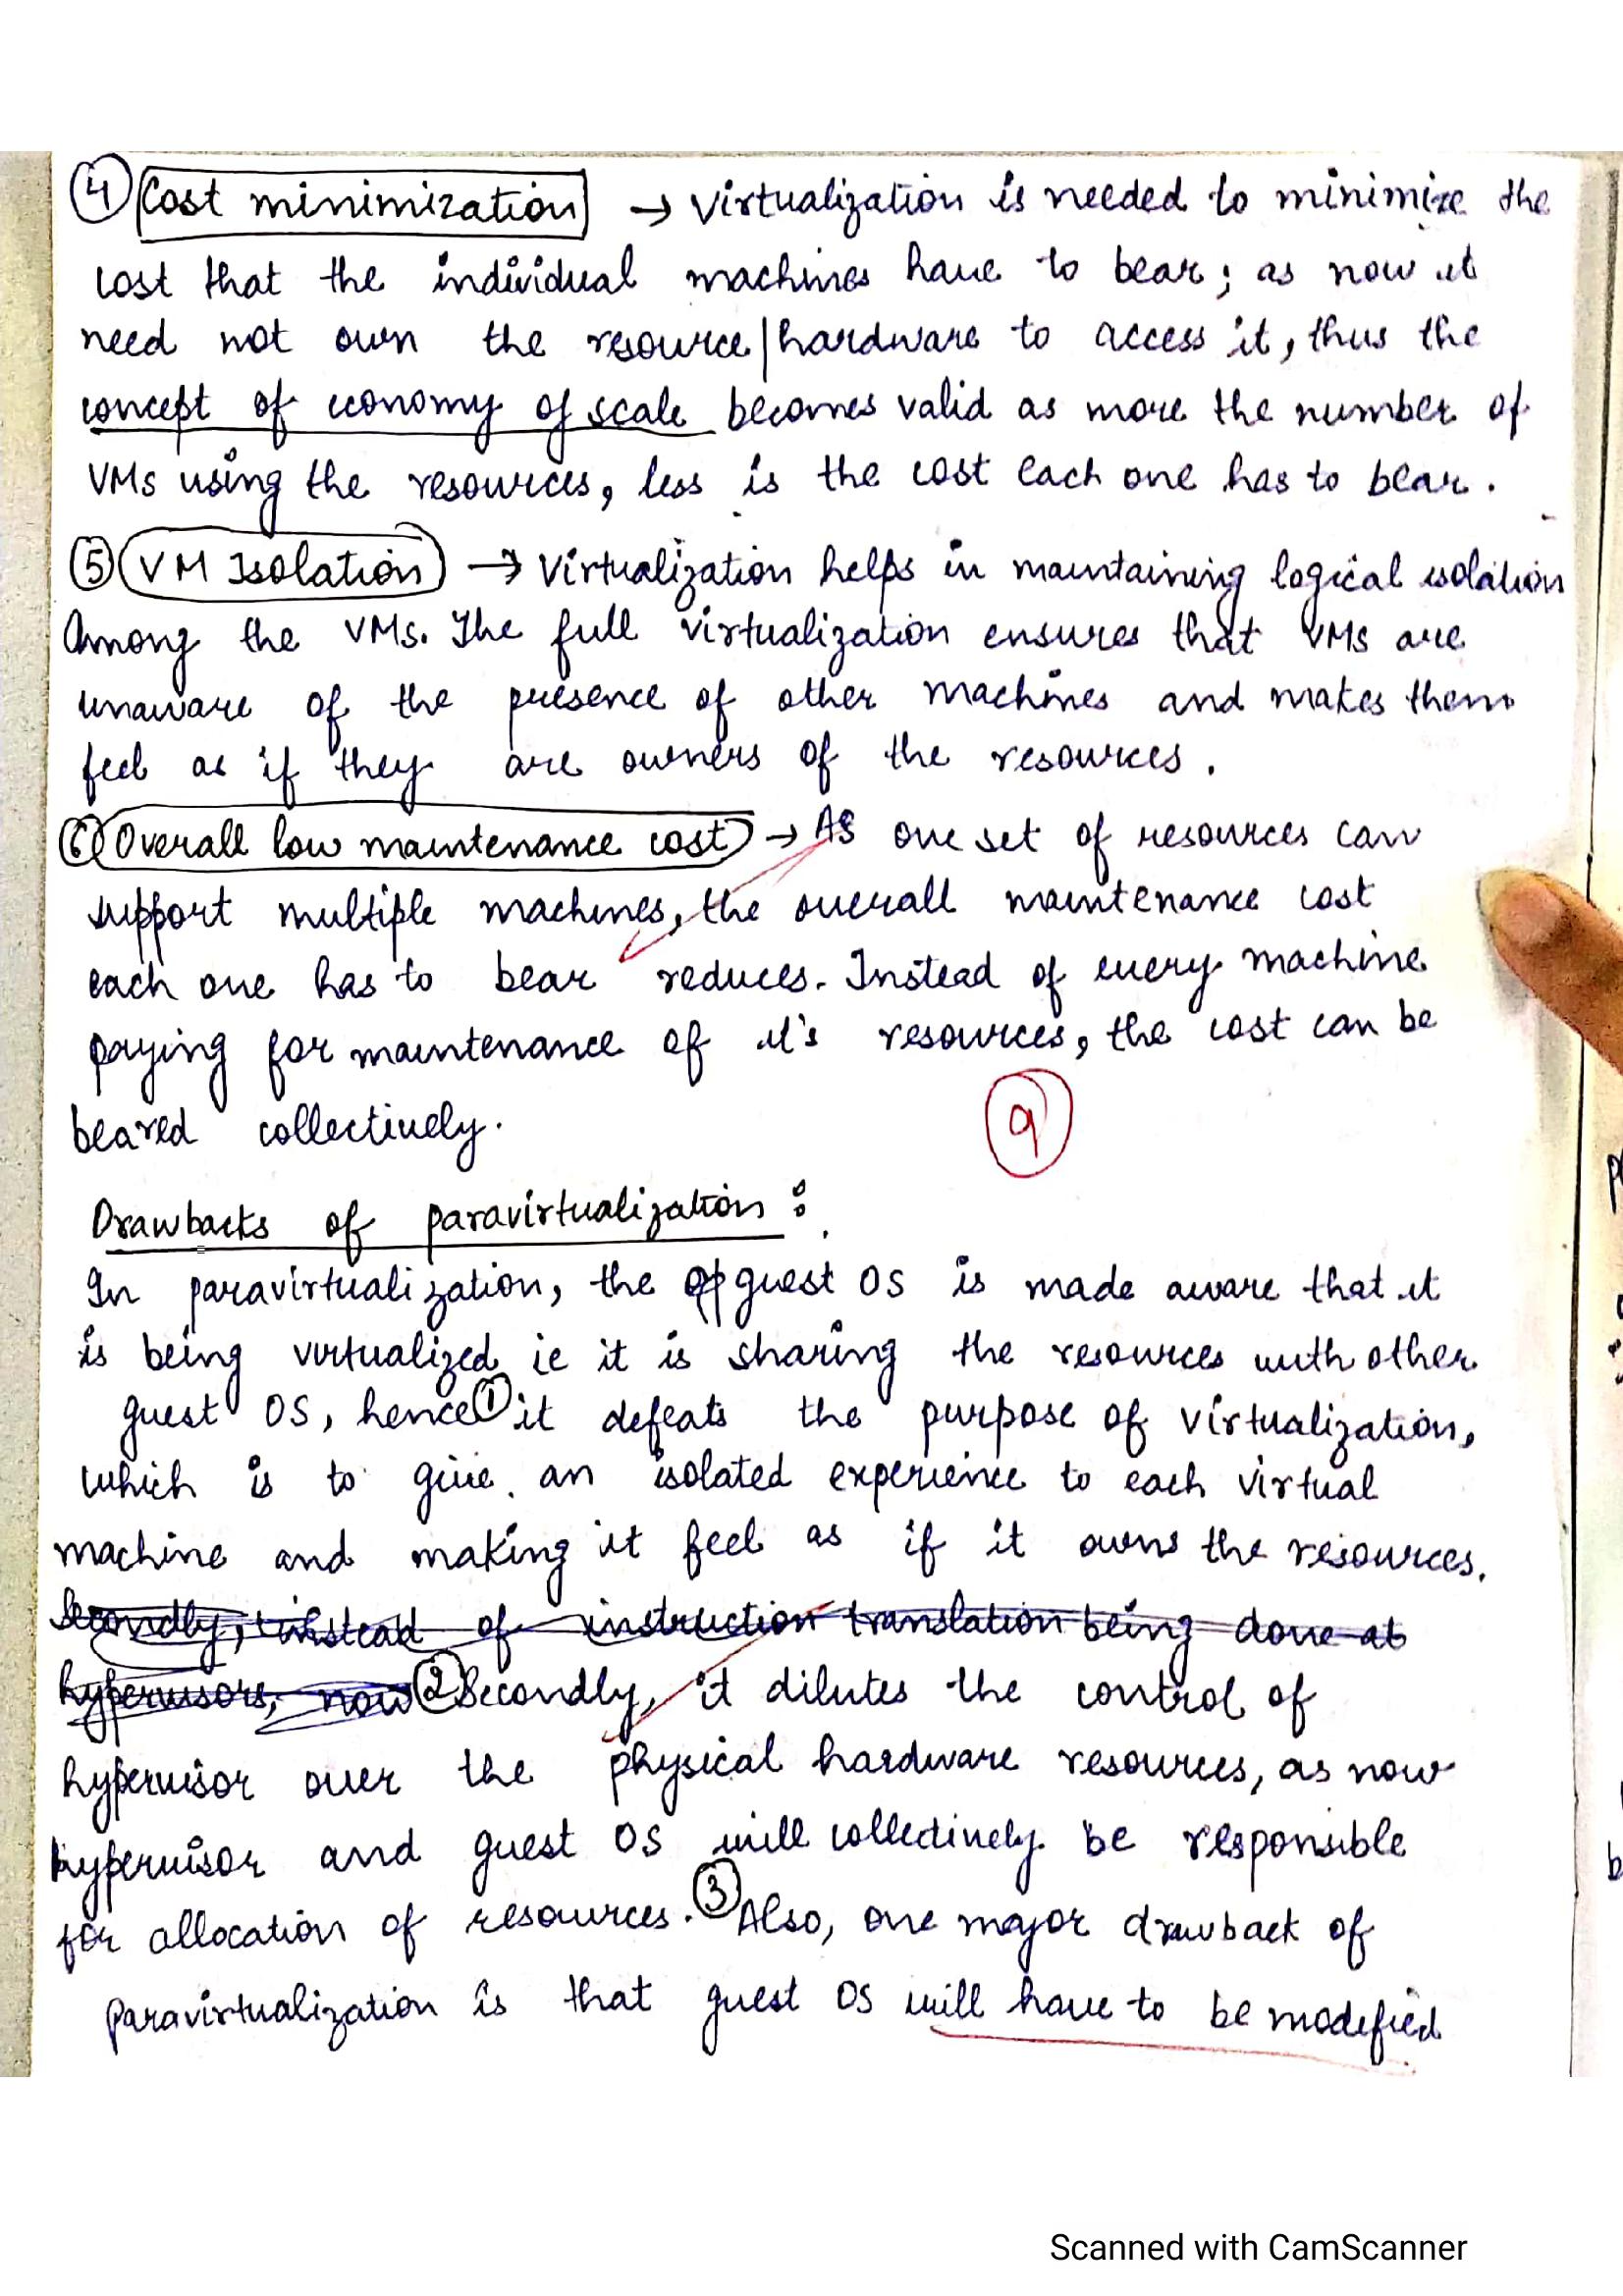 ④ Cost minimization → Virtualization is needed to minimize the
cost that the individual machines have to bear; as now it
need not own the resource/hardware to access it, thus the
concept of economy of scale becomes valid as more the number of
VMs using the resources, less is the cost each one has to bear.
⑤ VM Isolation → Virtualization helps in maintaining logical isolation
Among the VMs. The full virtualization ensures that VMs are
unaware of the presence of other machines and makes them
feel as if they are owners of the resources.
⑥ Overall low maintenance cost → AS one set of resources can
support multiple machines, the overall maintenance cost
each one has to bear reduces. Instead of every machine
paying for maintenance of it's resources, the cost can be
beared collectively.
9
Drawbacks of paravirtualization:
In paravirtualization, the guest OS is made aware that it
is being virtualized ie it is sharing the resources with other
guest OS, hence ① it defeats the purpose of virtualization,
which is to give an isolated experience to each virtual
machine and making it feel as if it owns the resources.
Secondly, instead of instruction translation being done at
hypervisors, now ② Secondly, it dilutes the control of
hypervisor over the physical hardware resources, as now
hypervisor and guest OS will collectively be responsible
for allocation of resources. ③ Also, one major drawback of
paravirtualization is that guest OS will have to be modified
Scanned with CamScanner